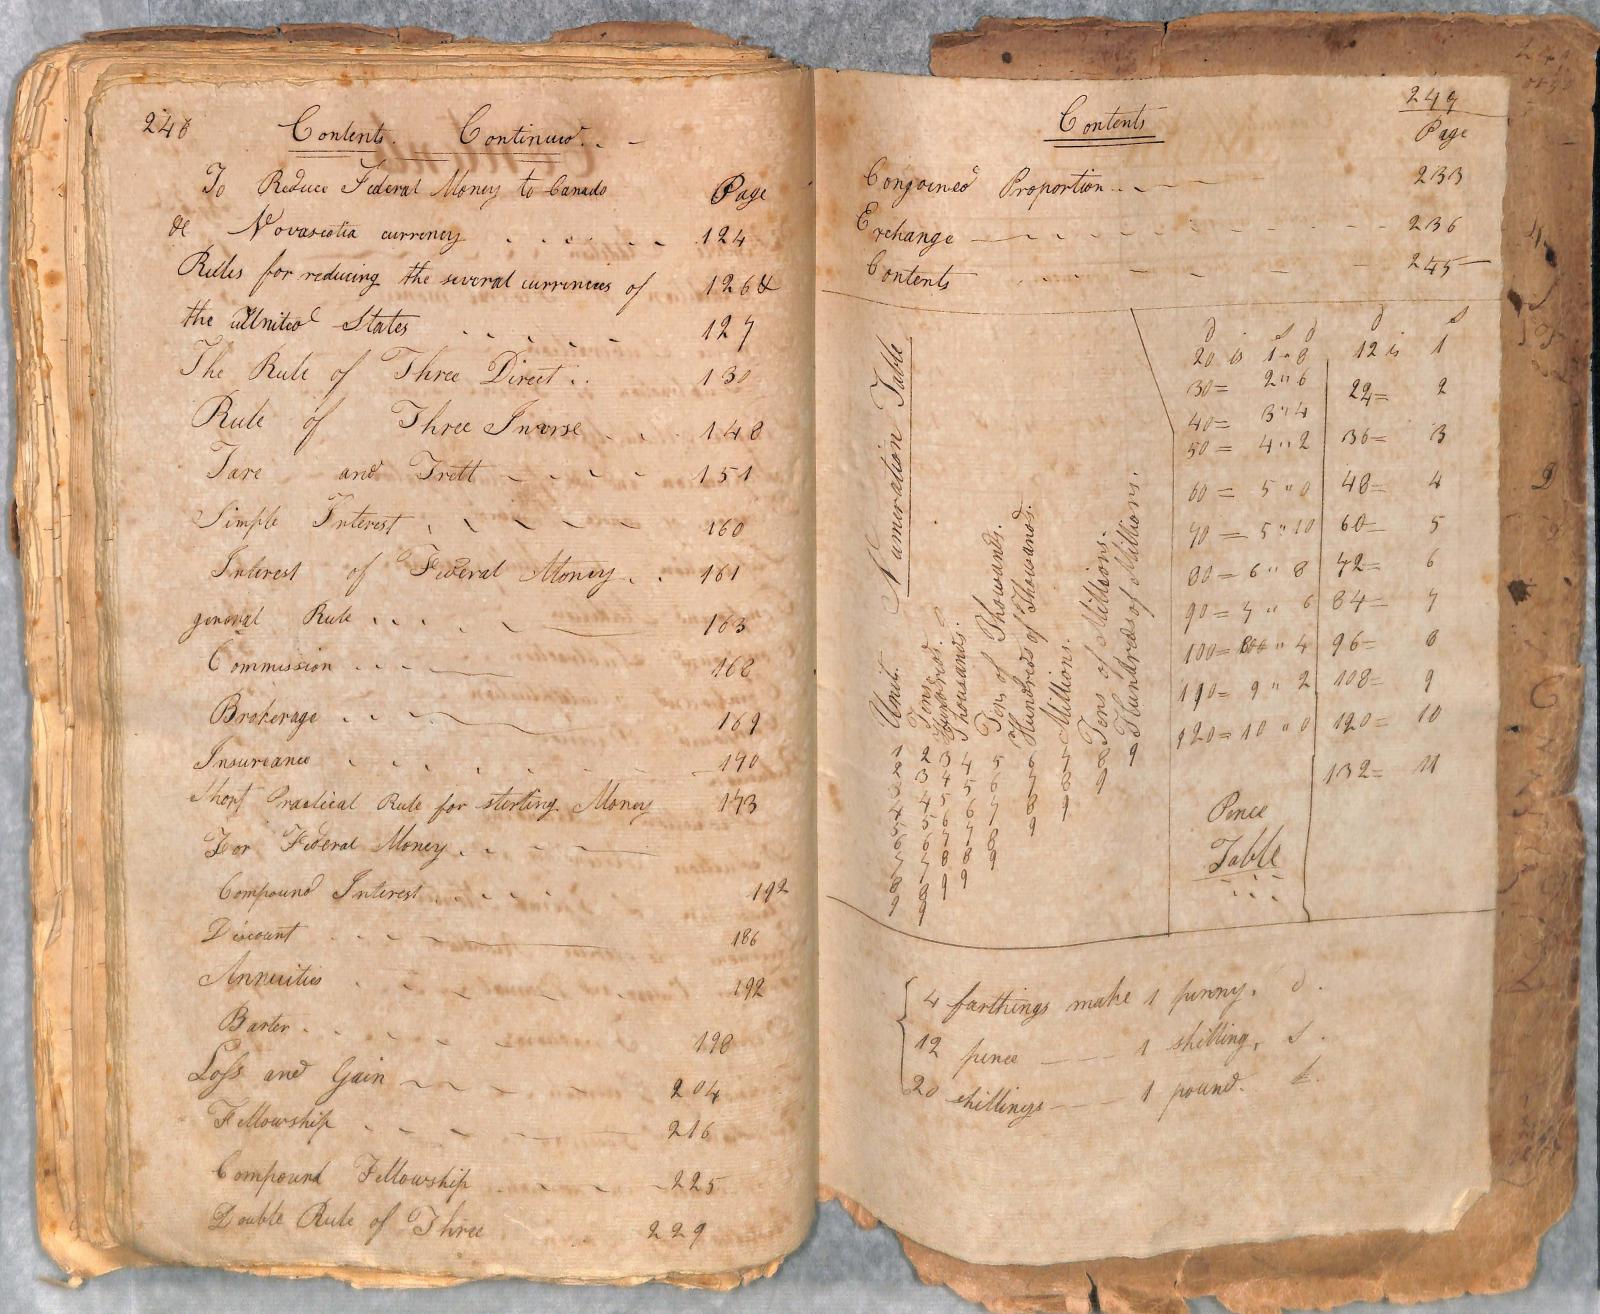 248
Contents. Continued.
To Reduce Federal Money to Canada
Page
& Novascotia currency 124
Rules for reducing the several currencies of 126 &
the United States 127
The Rule of Three Direct 130
Rule of Three Inverse 148
Tare and Trett 151
Simple Interest 160
Interest of Federal Money 161
general Rule 163
Commission 168
Brokerage 169
Insureance 170
Short Practical Rule for sterling Money 173
For Federal Money
Compound Interest 192
Discount 186
Annuities 192
Barter 198
Loss and Gain 204
Fellowship 216
Compound Fellowship 225
Double Rule of Three 229
249
Contents
Page
Conjoined Proportion 233
Exchange 236
Contents 245
Numeration Table
Unit.
Tens.
Hundreds.
Thousands.
Tens of Thousands.
Hundreds of Thousands.
Millions.
Tens of Millions.
Hundreds of Millions.
1 2 3 4 5 6 7 8 9
2 3 4 5 6 7 8 9
3 4 5 6 7 8 9
4 5 6 7 8 9
5 6 7 8 9
6 7 8 9
7 8 9
8 9
9
d s d
20 is 1 " 8
30 = 2 " 6
40 = 3 " 4
50 = 4 " 2
60 = 5 " 0
70 = 5 " 10
80 = 6 " 8
90 = 7 " 6
100 = 8 " 4
110 = 9 " 2
120 = 10 " 0
Pence
Table
d s
12 is 1
24 = 2
36 = 3
48 = 4
60 = 5
72 = 6
84 = 7
96 = 8
108 = 9
120 = 10
132 = 11
4 farthings make 1 penny. d.
12 pence 1 shilling, s.
20 shillings 1 pound. £.